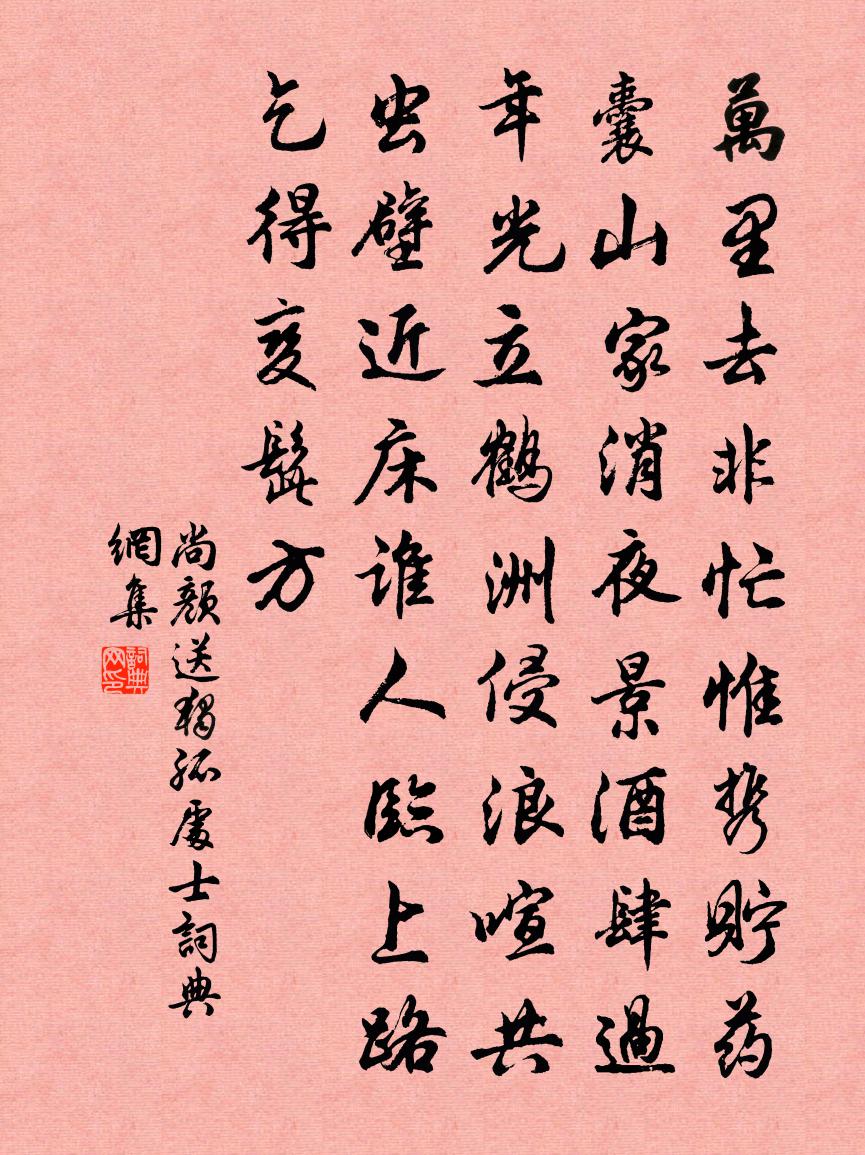 萬里去非忙惟携貯药
囊山家消夜景酒肆過
年光立鶴洲侵浪喧共
虫壁近床谁人臨上路
乞得变髭方
尚颜送獨孤處士詞典
網集
詞典网印